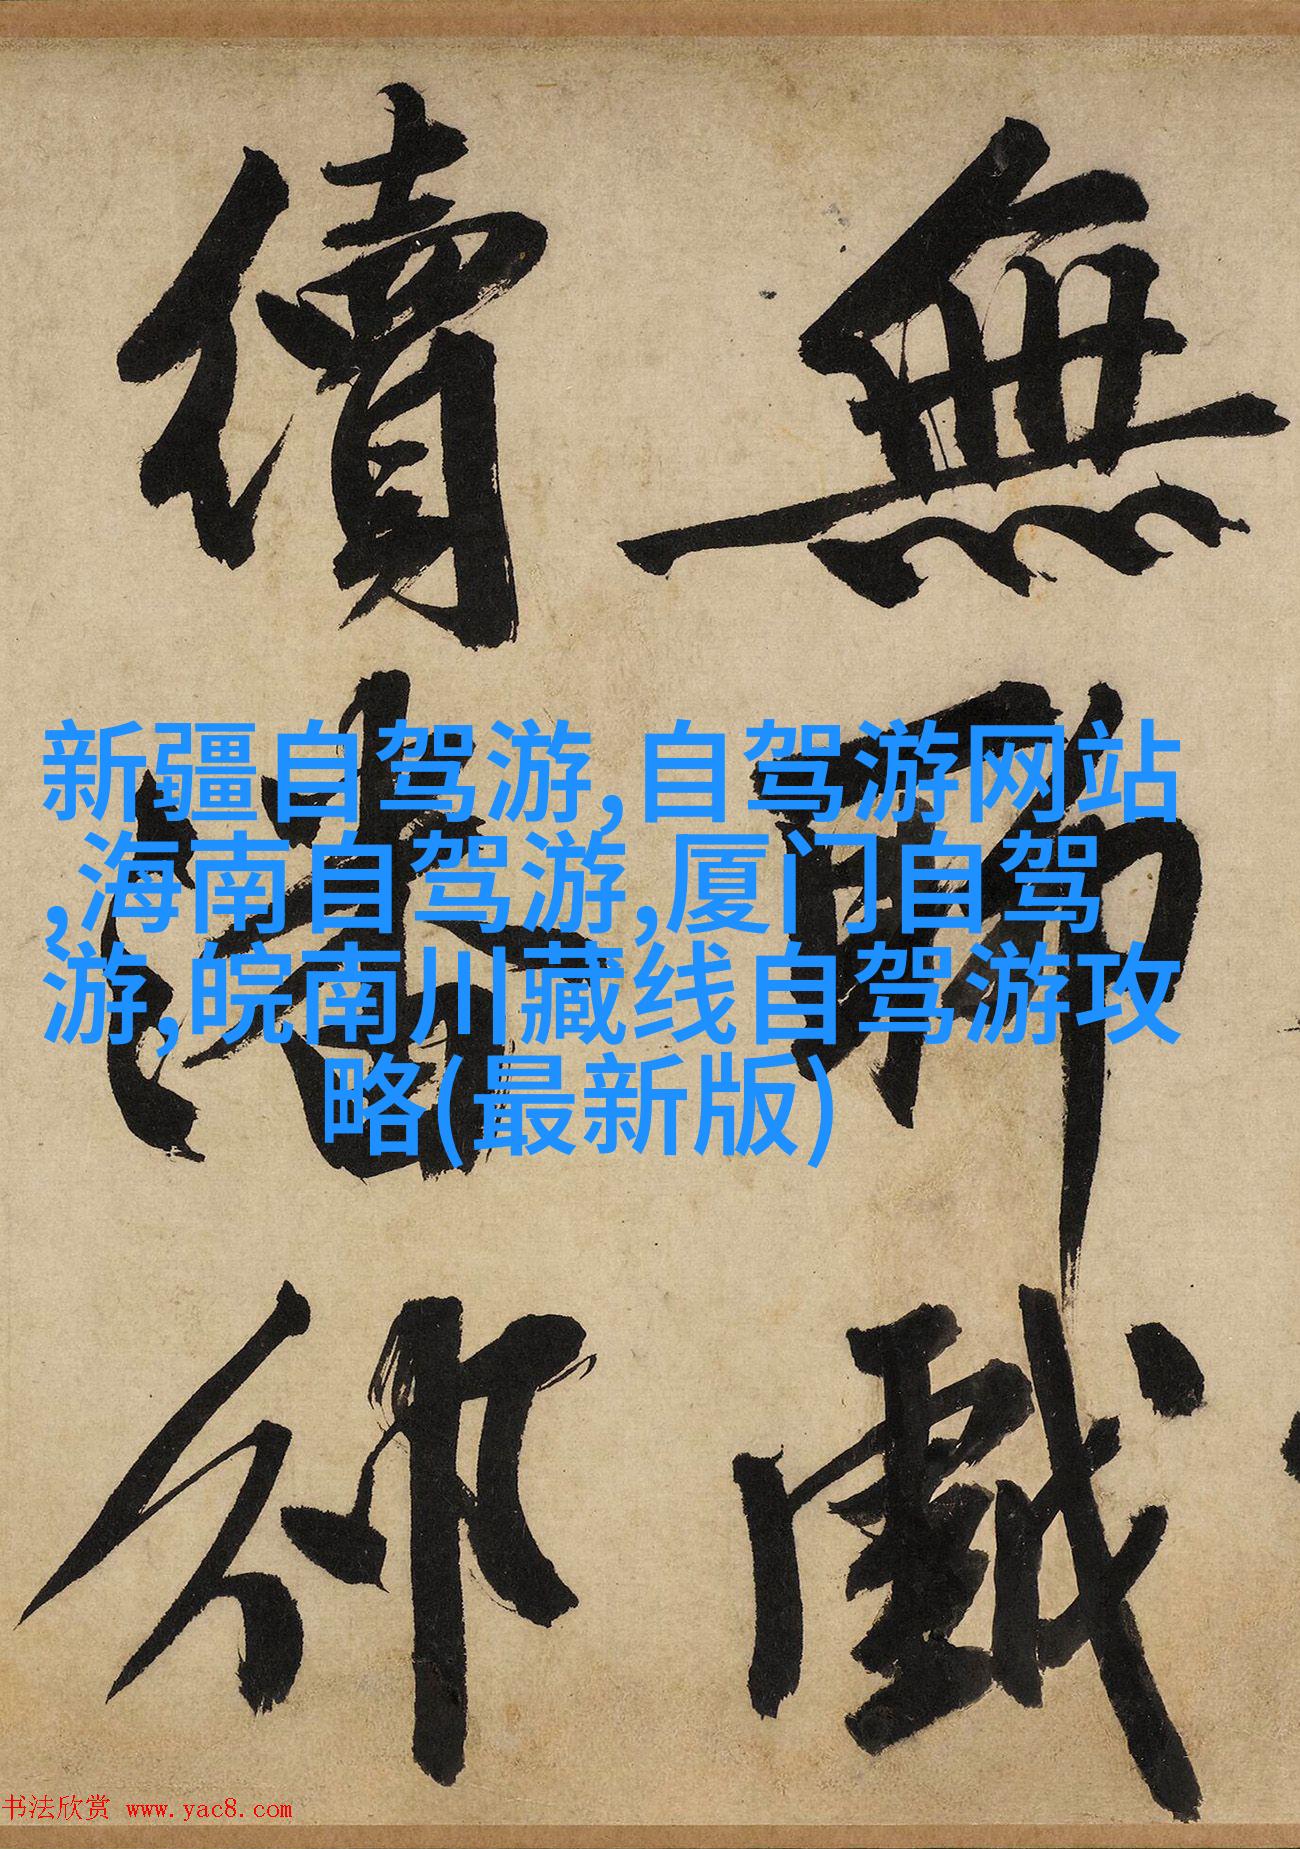 無聊戲
續潘邠
新疆自驾游,自驾游网站
,海南自驾游,厦门自驾
游,皖南川藏线自驾游攻
略(最新版)
书法欣赏 www.yac8.com